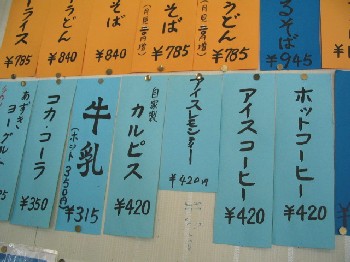 ーライス
￥785
ーうどん
￥840
そば
￥840
そば
￥785
うどん
￥785
るそば
￥945
ホットコーヒー
￥420
アイスコーヒー
￥420
アイスレモンティー
￥420円
自家製
カルピス
￥420
牛乳
(ホット350円)
￥315
コカ・コーラ
￥350
あずき
ヨーグルト